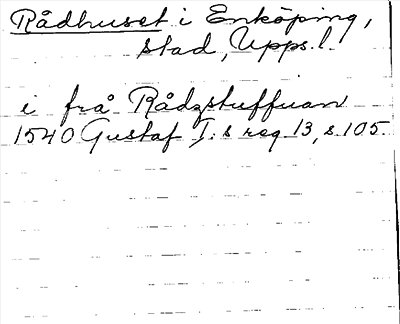 Rådhuset i Enköping,
stad, Upps. l.
i frå Rådzstuffuan
1540 Gustaf I:s reg. 13, s. 105.